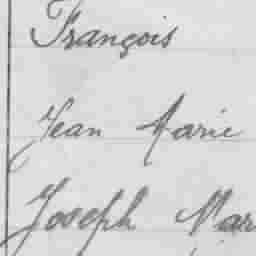 François
Jean Marie
Joseph Mar